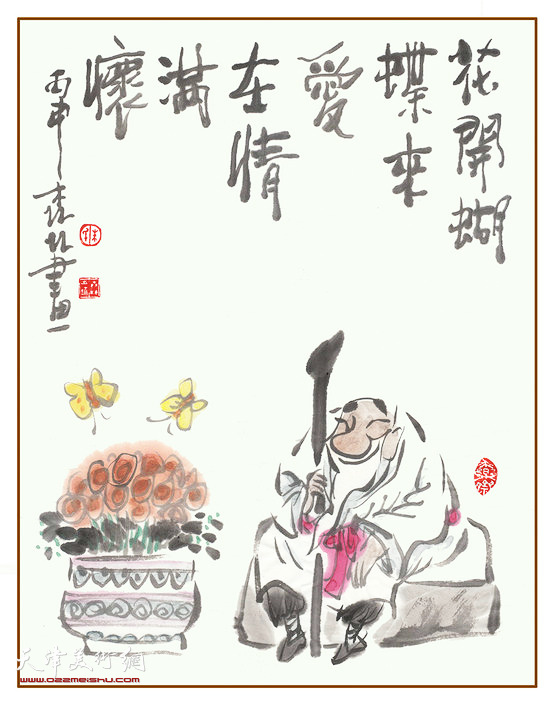 花開蝴
蝶來
愛
在情
滿
懷
丙申
畫
天津美術網
www.022meishu.com